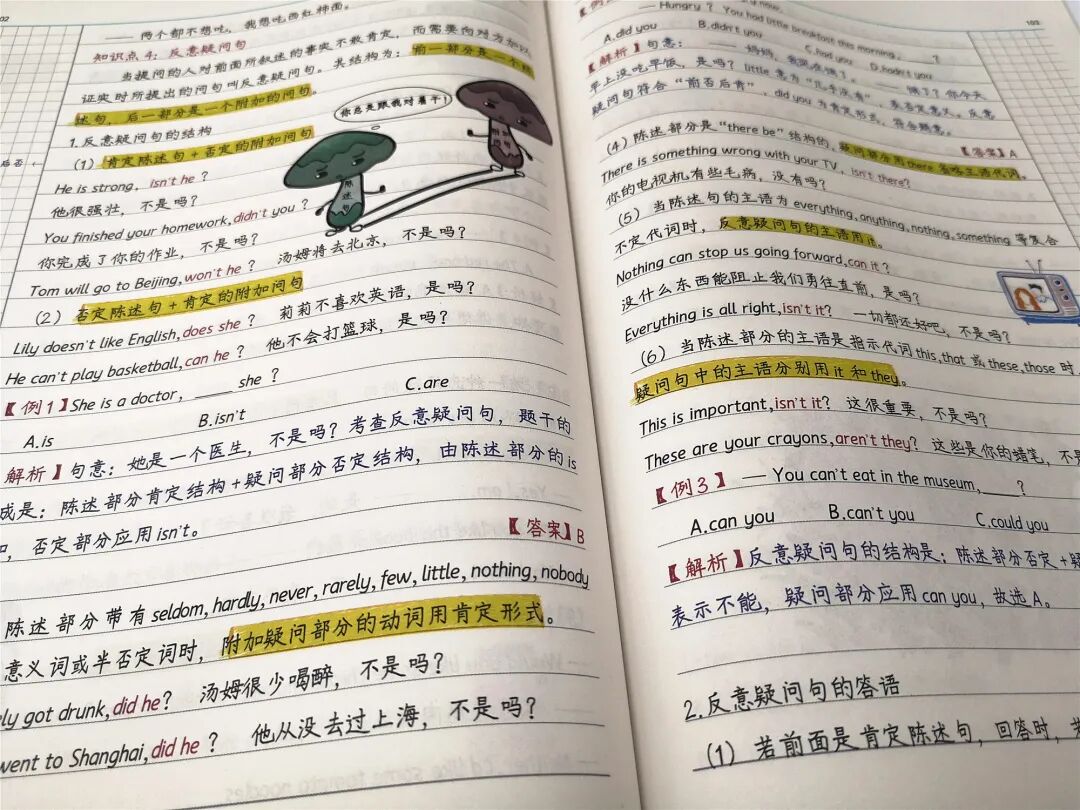 02
—— 两个都不想吃，我想吃西红柿面。
知识点 4：反意疑问句
当提问的人对前面所叙述的事实不敢肯定，而需要向对方加以
证实时所提出的问句叫反意疑问句。其结构为：前一部分是一个陈
述句，后一部分是一个附加的问句。
1.反意疑问句的结构
（1）肯定陈述句+否定的附加问句
He is strong, isn't he？
他很强壮，不是吗？
You finished your homework, didn't you？
你完成了你的作业，不是吗？
Tom will go to Beijing, won't he？ 汤姆将去北京，不是吗？
（2）否定陈述句+肯定的附加问句
Lily doesn't like English, does she？ 莉莉不喜欢英语，是吗？
He can't play basketball, can he？ 他不会打篮球，是吗？
【例1】She is a doctor, ____ she？
A.is B.isn't C.are
解析】句意：她是一个医生，不是吗？考查反意疑问句，题干的
成是：陈述部分肯定结构+疑问部分否定结构，由陈述部分的is
，否定部分应用isn't。
【答案】B
陈述部分带有seldom, hardly, never, rarely, few, little, nothing, nobody
意义词或半否定词时，附加疑问部分的动词用肯定形式。
ely got drunk, did he？ 汤姆很少喝醉，不是吗？
went to Shanghai, did he？ 他从没去过上海，不是吗？
你总是跟我对着干！
陈述句
后否
103
【例
now.
—— Hungry？ You had little breakfast this morning, ____？
A.did you B.didn't you C.had you D.hadn't you
【解析】句意：—— 妈妈，我现在饿了。—— 饿了？你今天
早上没吃早饭，是吗？little 意为“几乎没有”，表否定意义。反意
疑问句符合“前否后肯”，did you 为肯定形式，符合题意。
【答案】A
（4）陈述部分是“there be”结构的，疑问部分用there 省略主语代词。
There is something wrong with your TV, isn't there?
你的电视机有些毛病，没有吗？
（5）当陈述句的主语为 everything, anything, nothing, something 等复合
不定代词时，反意疑问句的主语用it。
Nothing can stop us going forward, can it？
没什么东西能阻止我们勇往直前，是吗？
Everything is all right, isn't it？ 一切都还好吧，不是吗？
（6）当陈述部分的主语是指示代词this, that 或 these, those 时，
疑问句中的主语分别用 it 和 they。
This is important, isn't it？ 这很重要，不是吗？
These are your crayons, aren't they？ 这些是你的蜡笔，不是
【例3】—— You can't eat in the museum, ____？
A.can you B.can't you C.could you
【解析】反意疑问句的结构是：陈述部分否定+疑
表示不能，疑问部分应用 can you，故选A。
2.反意疑问句的答语
（1）若前面是肯定陈述句，回答时，若